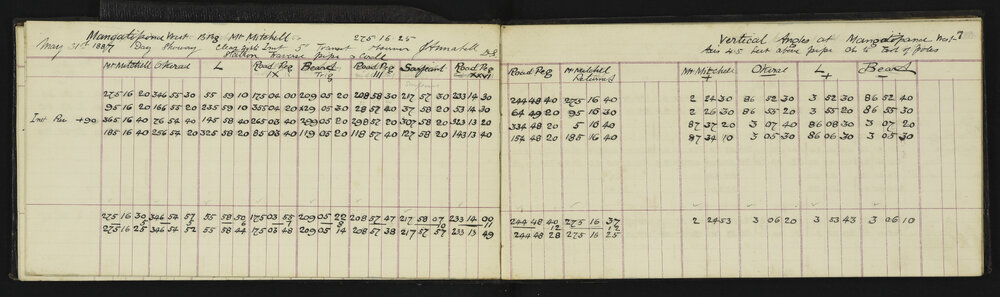 Mangatiparae West Brg Mt Mitchell 275 16 25
May 31st 1887 Day Showery Clear with Inst 5" Transit
Station Traverse pipe
Mt Mitchell Okarae L Road Peg IX Beard Trig Road Peg III Sargeant Road Peg XXVI
275 16 20 346 55 30 55 59 10 175 04 00 209 05 20 208 58 30 217 57 30 233 14 30
95 16 20 166 55 20 235 59 10 355 04 20 29 05 30 28 57 40 37 58 20 53 14 30
Inst Rev +90 365 16 40 76 54 40 145 58 40 265 03 40 299 05 20 298 57 20 307 58 20 323 13 20
185 16 40 256 54 20 325 58 20 85 03 40 119 05 20 118 57 40 127 58 20 143 13 40
275 16 30 346 54 57 55 58 50 175 03 55 209 05 22 208 57 47 217 58 07 233 14 00
5 6 7 8 10 11
275 16 25 346 54 52 55 58 44 175 03 48 209 05 14 208 57 38 217 57 57 233 13 49
Vertical Angles at Mangatiparae West 7
Axis 4.5 feet above pipe Ob to Foot of Poles
Road Peg Mt Mitchell Returned Mt Mitchell + Okarae L + Beard
244 48 40 275 16 40 2 24 30 86 52 30 3 52 30 86 52 40
64 49 20 95 16 30 2 26 30 86 55 20 3 55 20 86 55 30
334 48 20 5 16 40 87 37 20 3 07 40 86 08 30 3 07 20
154 48 20 185 16 40 87 34 10 3 05 30 86 06 30 3 05 30
244 48 40 275 16 37 2 24 53 3 06 20 3 53 43 3 06 10
12 12
244 48 28 275 16 25